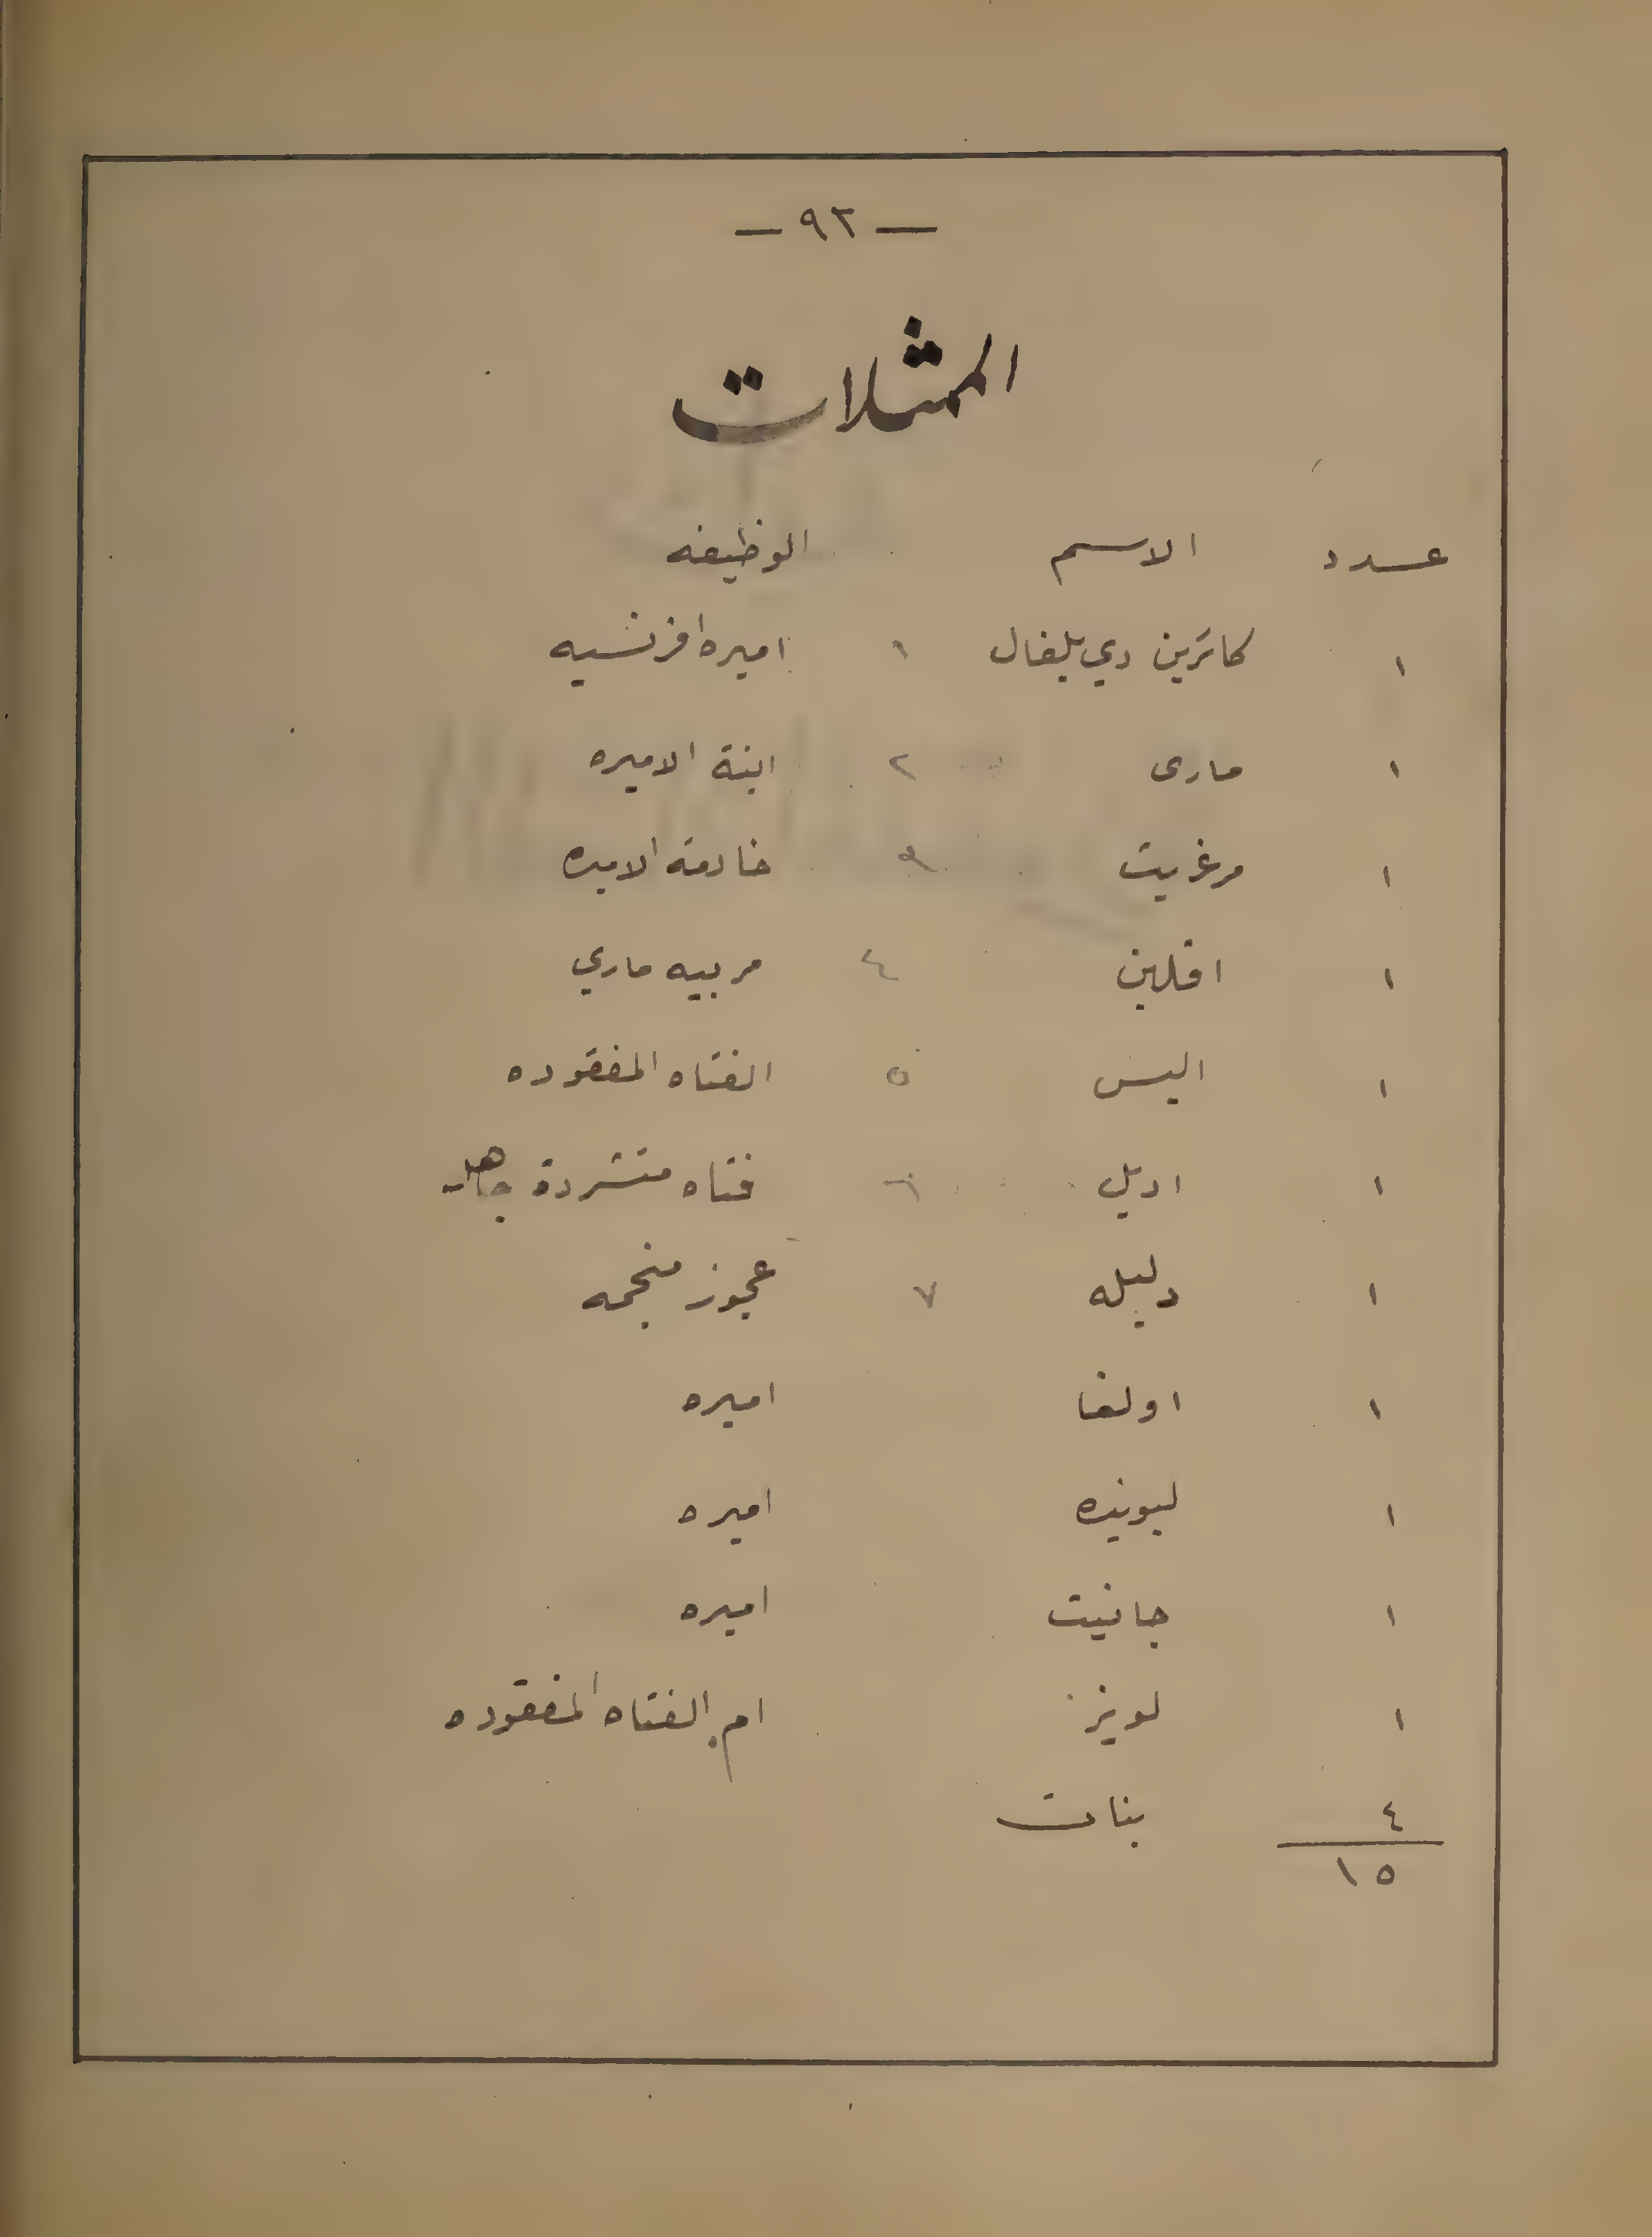 — ٩٢ —
الممثلات
عدد الاسم الوظيفه
١ كاترين دي بلغال ١ اميره افرنسيه
١ مارى ٢ ابنة الاميره
١ مرغريت ٣ خادمة الاميره
١ اڤلين ٤ مربيه ماري
١ اليس ٥ الفتاه المفقوده
١ اديل ٦ فتاه متشردة
١ دليله ٧ عجوز منجمه
١ اولغا اميره
١ اميره
١ جانيت اميره
١ لويز ام الفتاه المفقوده
٤ بنات
١٥